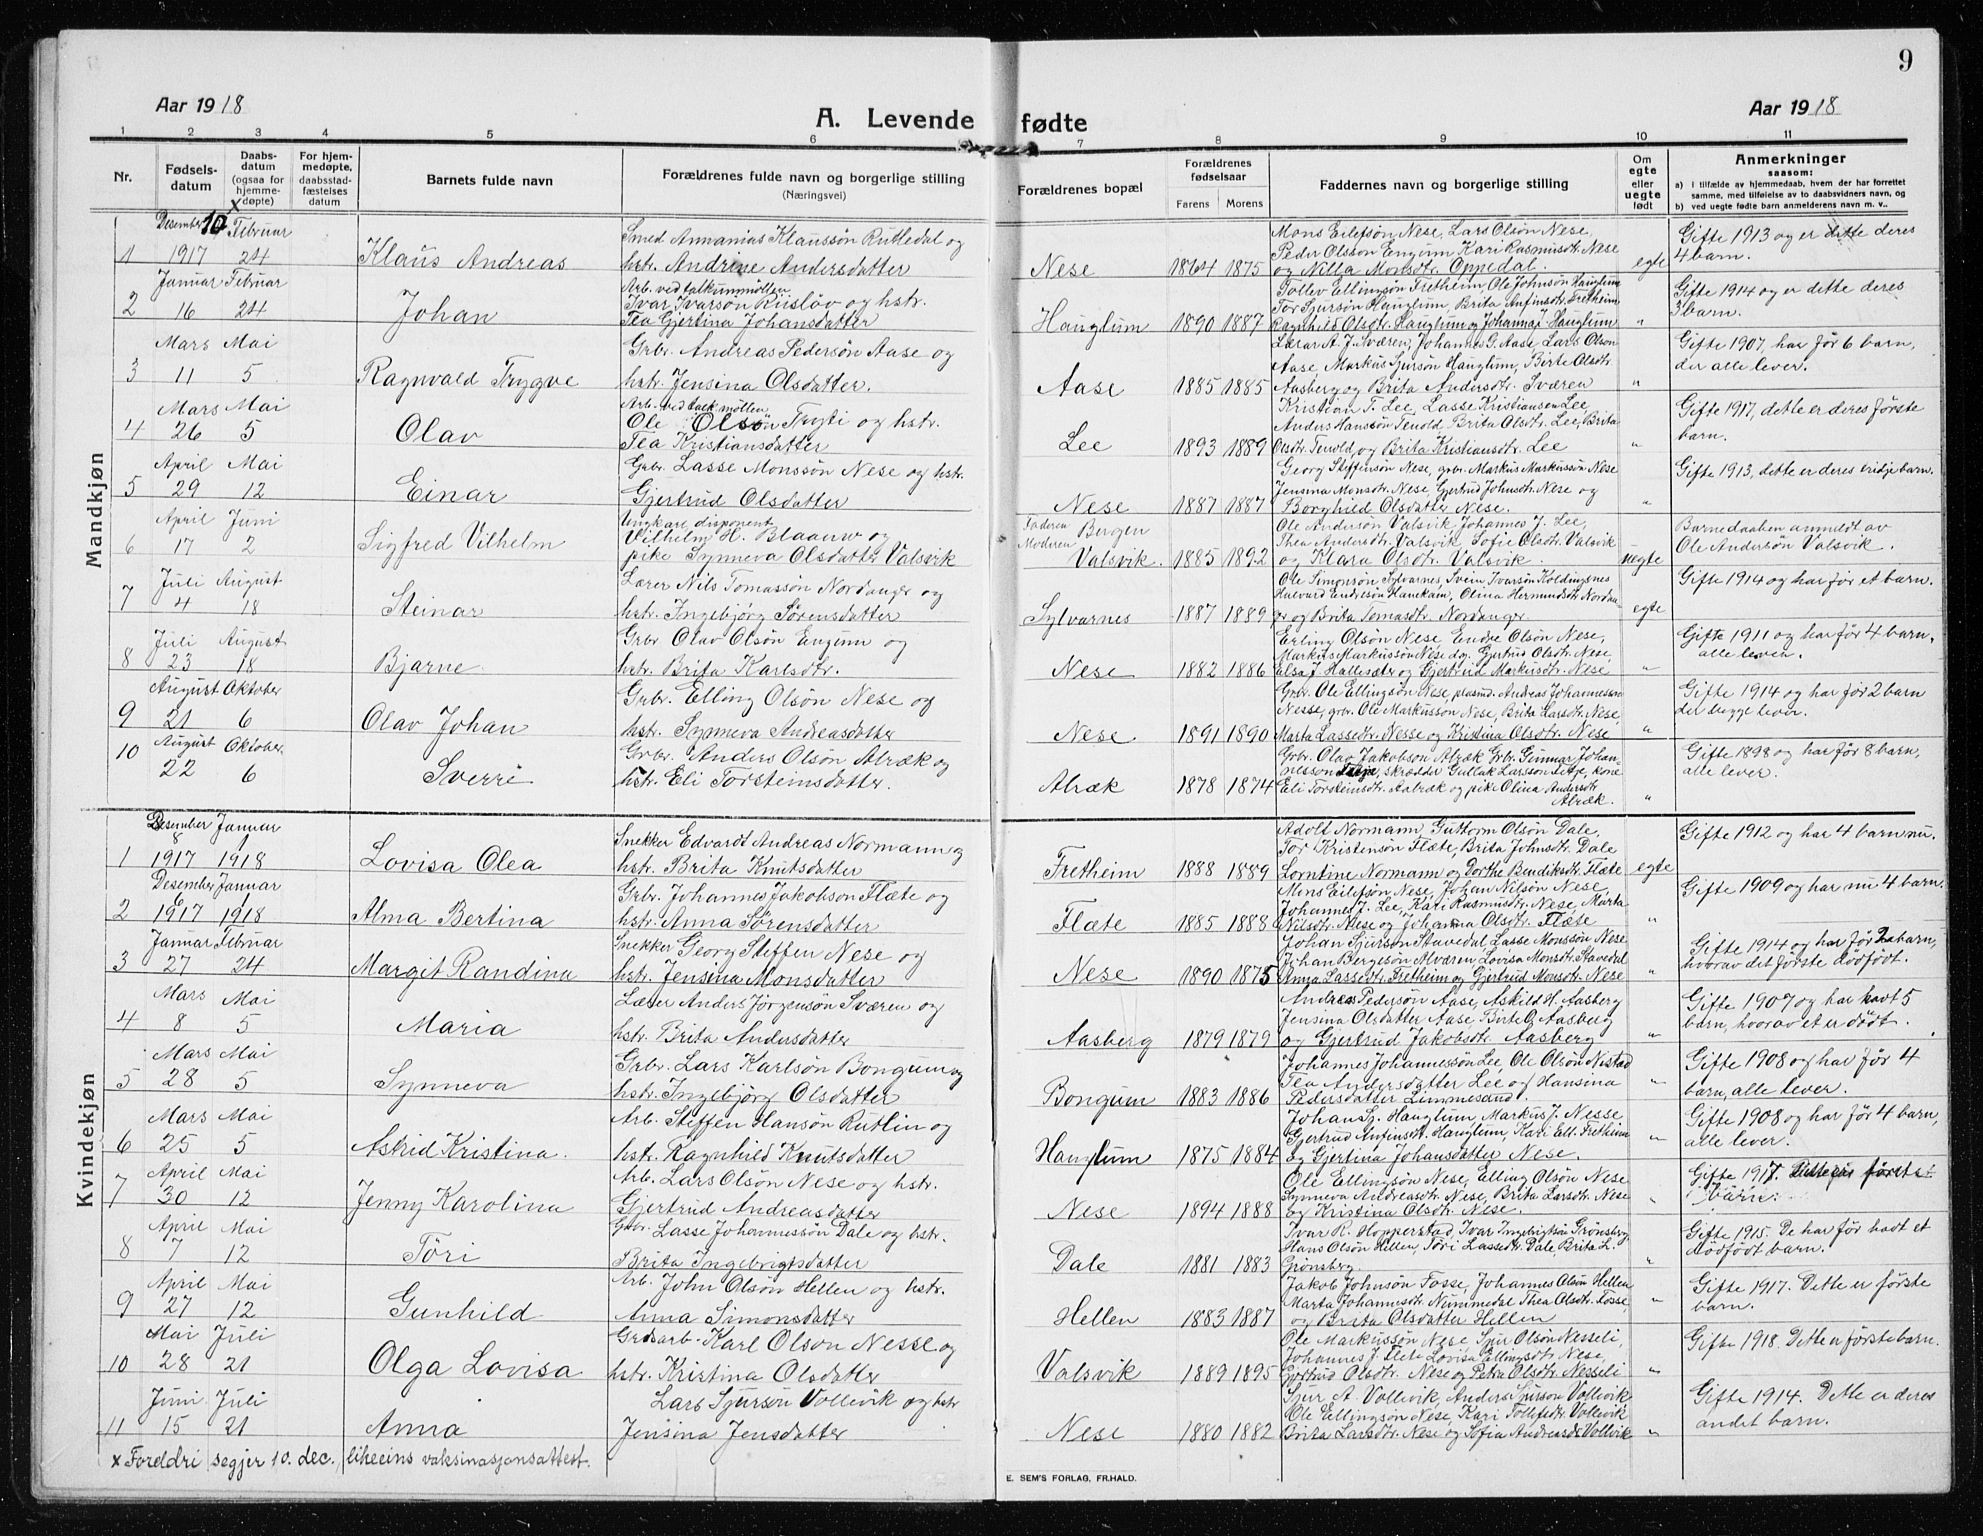 9
Aar 1918
A. Levende fødte
Aar 1918
1 2 3 4 5 6 7 8 9 10 11
Nr.
Fødsels-
datum
Daabs-
datum
(ogsaa for
hjemme-
døpte)
x
For hjem-
medøpte,
daabsstad-
fæstelses
datum
Barnets fulde navn
Forældrenes fulde navn og borgerlige stilling
(Næringsvei)
Forældrenes bopæl
Forældrenes
fødselsaar
Farens Morens
Faddernes navn og borgerlig stilling
Om
egte
eller
uegte
født
Anmerkninger
saasom:
a) i tilfælde av hjemmedaab, hvem der har forrettet
samme, med tilføielse av to daabsvidners navn, og
b) ved uegte fødte barn anmelderens navn m. v..
Mandkjøn
Desember 10 Februar
1 1917 24
Klaus Andreas
Smed Annanias Klaussøn Rutledal og
hstr. Andrine Andersdatter
Nese 1864 1875
Mons Eilefsøn Nese, Lars Olsøn Nese,
Peder Olsson Engum Kari Rasmusdtr. Nese
og Nilla Monsdtr. Oppedal.
egte
Gifte 1913 og er dette deres
4 barn.
Januar Februar
2 16 24
Johan
Arb. ved talkummøllen
Ivar Ivarsøn og hstr.
Tea Gjertina Johansdatter
Hauglum 1890 1887
Tollev Ellingsøn Fretheim, Ole Johnsøn Hauglum
Tor Sjursøn Hauglum, Brita Anfinsdtr. Fretheim
Ragnhild Olsdtr. Hauglum og Johanna J. Hauglum
"
Gifte 1914 og er dette deres
3 barn.
Mars Mai
3 11 5
Ragnvald Trygve
Grbr. Andreas Pedersøn Aase og
hstr. Jensina Olsdatter.
Aase 1885 1885
Lærar A. J. Sværen, Johannes G. Aase Lars Olson
Aase, Markus Sjursøn Hauglum, Birte Olsdtr.
Aasberg og Brita Andersdtr. Sværen
"
Gifte 1907, har før 6 barn,
der alle lever.
Mars Mai
4 26 5
Olav
Arb. ved talk.møllen
Ole Olsøn Frysti og hstr.
Tea Kristiansdatter
Lee 1893 1889
Kristian T. Lee, Lasse Kristiansen Lee
Anders Hanssøn Tenold, Brita Olsdtr. Lee, Brita
Olsdtr. Tenold, og Brita Kristiansdtr. Lee
"
Gifte 1917, dette er deres første
barn.
April Mai
5 29 12
Einar
Grbr. Lasse Monssøn Nese og hstr.
Gjertrud Olsdatter
Nese 1887 1887
Georg Steffensøn Nese, grbr. Markus Markussøn Nese
Jensina Monsdtr. Nese, Gjertrud Johnsdtr. Nese og
Borghild Olsdatter Nese.
"
Gifte 1913, dette er deres tridje barn.
April Juni
6 17 2
Sigfred Vilhelm
Ungkare, disponent
Vilhelm H. Blaauw og
pike Synneva Olsdatter Valsvik
Faderen Bergen
Moderen Valsvik. 1885 1892
Ole Andersøn Valsvik, Johannes J. Lee,
Thea Andersdtr. Valsvik, Sofie Olsdtr. Valsvik
og Klara Olsdtr. Valsvik.
uegte
Barnedaaben anmeldt av
Ole Andersøn Valsvik.
Juli August
7 4 18
Steinar
Lærer Nils Tomassøn Nordanger og
hstr. Ingebjørg Sørensdatter
Sylvarnes 1887 1889
Ole Simonsøn Sylvarnes, Svein Ivarsøn Koldingsnes
Halvard Endresøn Haukam, Olina Hermundsdtr. Nordan-
ger og Brita Tomasdtr. Nordanger.
egte
Gifte 1914 og har før et barn.
Juli August
8 23 18
Bjarne.
Grbr Olav Olsøn Engum og
hstr. Brita Karlsdtr.
Nese 1882 1886
Erling Olsøn Nese, Endre Olsøn Nese,
Markus Markussøn Nese og. Gjertrud Olsdtr. Nese
Elsa J Hallesæter og Gjertrud Markusdtr. Nese
"
Gifte 1911 og har før 4 barn,
alle lever.
August Oktober
9 21 6
Olav Johan
Grbr. Elling Olsøn Nese og
hstr. Synneva Andreasdatter
Nese 1891 1890
Grbr. Ole Ellingsøn Nese, Andreas Johannessøn
Nesse, grbr. Ole Markussøn Nese, Brita Larsdtr. Nese,
Marta Lassedtr. Nesse og Kristina Olsdtr. Nese
"
Gifte 1914 og har før 2 barn
der begge lever.
August Oktober
10 22 6
Sverre
Grbr. Anders Olsøn Alræk og
hstr. Eli Torsteinsdatter.
Alræk 1878 1874
Grbr. Olav Jakobson Alræk Grbr. Gunnar Johan-
nesson skrædder Gullak Larsson kone
Eli Torsteinsdtr. Aalræk og pike Olina Andersdtr
Alræk.
"
Gifte 1898 og har før 8 barn,
alle lever.
Kvindekjøn
Desember Januar
8 1
1 1917 1918
Lovisa Olea
Snekker Edvardt Andreas Normann og
hstr. Brita Knutsdatter
Fretheim 1888 1889
Adolf Normann, Guttorm Olsøn Dale,
Tor Kristensøn Flæte, Brita Johnsdtr. Dale
Lorntine Normann og Dorthe Bendiksdtr. Flæte
egte
Gifte 1912 og har 4 barn nu.
Desember Januar
6 1
2 1917 1918
Alma Bertina
Grbr. Johannes Jakobson Flæte og
hstr. Anna Sørensdatter
Flæte 1885 1888
Mons Eilefsøn Nese, Johan Nilsøn Nese,
Johannes J. Lee, Kari Rasmusdtr. Nese, Marta
Nilsdtr. Nese og Johanna Olsdtr. Flæte
"
Gifte 1909 og har nu 4 barn.
Januar Februar
3 27 24
Margit Randina
Snekker Georg Steffen Nese og
hstr. Jensina Monsdatter
Nese 1890 1875
Johan Sjursøn Stavedal Lasse Monssøn Nese
Johan Børgesøn Alværen, Lovisa Monsdtr. Stavedal
Anna Lassedtr. Fretheim og Gjertrud Monsdtr. Nese
"
Gifte 1914 og har før 2 barn,
hvorav det første dødfødt.
Mars Mai
4 8 5
Maria
Lærer Anders Jørgensøn Sværen og
hstr. Brita Andersdatter
Aasberg 1879 1879
Andreas Pedersøn Aase, Askild H. Aasberg
Jensina Olsdatter Aase Birte O. Aasberg
og Gjertrud Jakobsdtr. Aasberg
"
Gifte 1907 og har havt 5
barn, hvorav et er dødt.
Mars Mai
5 28 5
Synneva
Grbr. Lars Karlsøn Bongum og
hstr. Ingebjørg Olsdatter
Bongum 1883 1886
Johannes Johannessøn Lee, Ole Olsøn Nistad
Tea Andersdatter Lee og Hansina
Pedersdatter Limmesand.
"
Gifte 1908 og har før 4
barn, alle lever.
Mars Mai
6 25 5
Astrid Kristina.
Arb. Steffen Hansøn Rutlin og
hstr. Ragnhild Knutsdatter
Hauglum 1875 1884
Johan Sj. Hauglum, Markus J. Nesse
Gjertrud Anfinsdtr. Hauglum, Kari Ell. Fretheim
og Gjertina Johansdatter Nese.
"
Gifte 1908 og har før 4 barn,
alle lever.
April Mai
7 30 12
Jenny Karolina
Arb. Lars Olsøn Nese og hstr.
Gjertrud Andreasdatter
Nese 1894 1888
Ole Ellingsøn Nese, Elling Olsøn Nese
Synneva Andreasdtr. Nese, Brita Larsdtr. Nese
og Kristina Olsdtr. Nese.
"
Gifte 1917. Dette er første
barn.
April Mai
8 7 12
Tøri
Grbr. Lasse Johannessøn Dale og hstr.
Brita Ingebrigtsdatter
Dale 1881 1883
Ivar R. Hopperstad, Ivar Ingebrigtsøn Grønsberg,
Hans Olsøn Hellen, Tøri Lassedtr. Dale Brita L.
Grønsberg.
"
Gifte 1915. De har før havt et
dødfødt barn.
April Mai
9 27 12
Gunhild
Arb. John Olsøn Hellen og hstr.
Anna Simonsdatter
Hellen 1883 1887
Jakob Johnsøn Fosse, Johannes Olsøn Hellen
Marta Johannesdtr. Nummedal Thea Olsdtr. Fosse
og Brita Olsdatter Hellen
"
Gifte 1917. Dette er første
barn.
Mai Juli
10 28 21
Olga Lovisa
Grdsarb. Karl Olson Nesse og
hstr. Kristina Olsdatter
Valsvik 1889 1895
Ole Markussøn Nese, Sjur Olsøn Nesseli,
Johannes J. Flete Lovisa Ellingsdtr. Nese,
Gjertrud Olsdtr. Nese og Petra Olsdtr. Nesseli
"
Gifte 1918. Dette er første barn.
Juni Juli
11 15 21
Anna
Lars Sjursøn Vollevik og hstr
Jensina Jensdatter
Nese 1880 1882
Sjur A. Vollevik, Anders Sjurson Vollevik
Ole Ellingsøn Nese, Kari Tollefsdtr. Vollevik
Brita Larsdtr. Nese og Sofia Andreasdtr Vollvik
"
Gifte 1914. Dette er deres
andet barn.
x Foreldri segjer 10. dec. likeeins vaksinasjonsattest.
E. SEM'S FORLAG, FR.HALD.